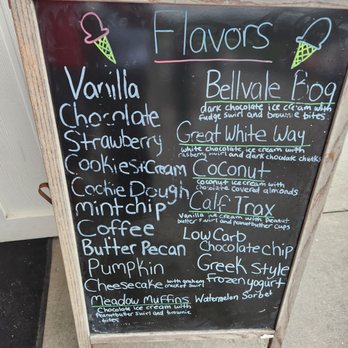 Flavors
Vanilla
Chocolate
Strawberry
Cookies+Cream
Cookie Dough
mint chip
Coffee
Butter Pecan
Pumpkin
Cheesecake with graham
cracker swirl
Meadow Muffins
Chocolate ice cream with
peanutbutter swirl and brownie
bites
Bellvale Bog
dark chocolate ice cream with
fudge swirl and brownie bites
Great White Way
white chocolate ice cream with
raspberry swirl and dark chocolate chunks
Coconut
coconut ice cream with
chocolate covered almonds
Calf Trax
Vanilla ice cream with Peanut
butter swirl and peanutbutter cups
Low Carb
Chocolate chip
Greek style
frozen yogurt
Watermelon Sorbet